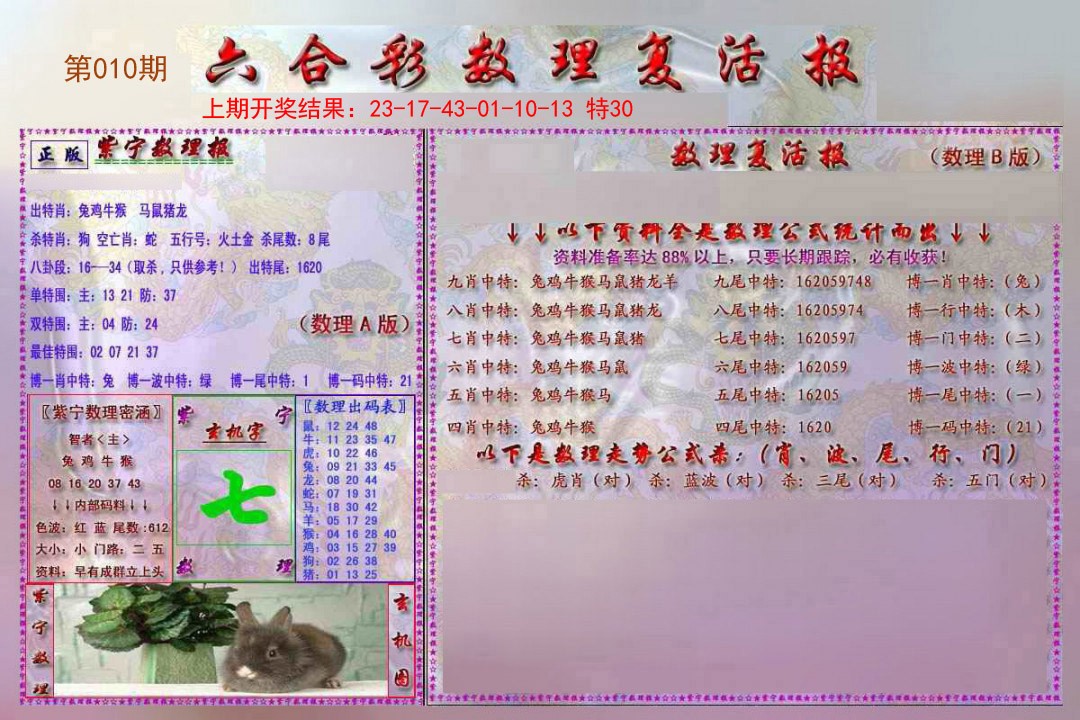 第010期
六合彩数理复活报
上期开奖结果：23-17-43-01-10-13 特30
正版
紫宁数理报
出特肖：兔鸡牛猴 马鼠猪龙
杀特肖：狗 空亡肖：蛇 五行号：火土金 杀尾数：8尾
八卦段：16--34（取杀，只供参考！） 出特尾：1620
单特围：主：13 21 防：37
双特围：主：04 防：24
（数理A版）
最佳特围：02 07 21 37
博一肖中特：兔 博一波中特：绿 博一尾中特：1 博一码中特：21
〖紫宁数理密涵〗
智者<主>
兔 鸡 牛 猴
08 16 20 37 43
↓↓内部码料↓↓
色波：红 蓝 尾数:612
大小：小 门路：二 五
资料：早有成群立上头
紫宁
玄机字
七
数理
〖数理出码表〗
鼠：12 24 48
牛：11 23 35 47
虎：10 22 46
兔：09 21 33 45
龙：08 20 44
蛇：07 19 31
马：18 30 42
羊：05 17 29
猴：04 16 28 40
鸡：03 15 27 39
狗：02 26 38
猪：01 13 25
紫宁数理
玄机图
数理复活报
（数理B版）
↓↓以下资料全是数理公式统计而出↓↓
资料准备率达88%以上，只要长期跟踪，必有收获！
九肖中特：兔鸡牛猴马鼠猪龙羊 九尾中特：162059748 博一肖中特：（兔）
八肖中特：兔鸡牛猴马鼠猪龙 八尾中特：16205974 博一行中特：（木）
七肖中特：兔鸡牛猴马鼠猪 七尾中特：1620597 博一门中特：（二）
六肖中特：兔鸡牛猴马鼠 六尾中特：162059 博一波中特：（绿）
五肖中特：兔鸡牛猴马 五尾中特：16205 博一尾中特：（一）
四肖中特：兔鸡牛猴 四尾中特：1620 博一码中特：（21）
以下是数理走势公式杀：（肖、波、尾、行、门）
杀：虎肖（对） 杀：蓝波（对） 杀：三尾（对） 杀：五门（对）